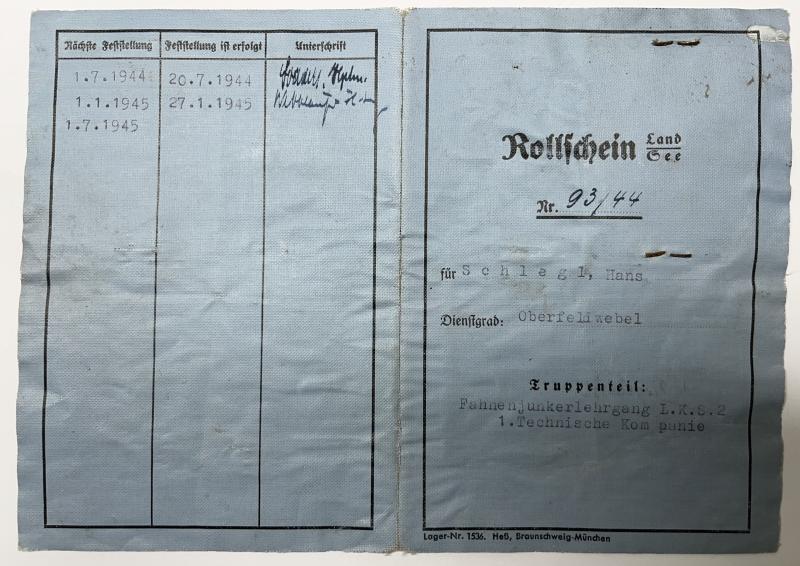 Nächste Feststellung Feststellung ist erfolgt Unterschrift
1.7.1944 20.7.1944
1.1.1945 27.1.1945
1.7.1945
Rollschein Land
See
Nr. 93/44
für Schlegl, Hans
Dienstgrad: Oberfeldwebel
Truppenteil:
Fahnenjunkerlehrgang L.K.S.2
1.Technische Kom panie
Lager-Nr. 1536. Heß, Braunschweig-München